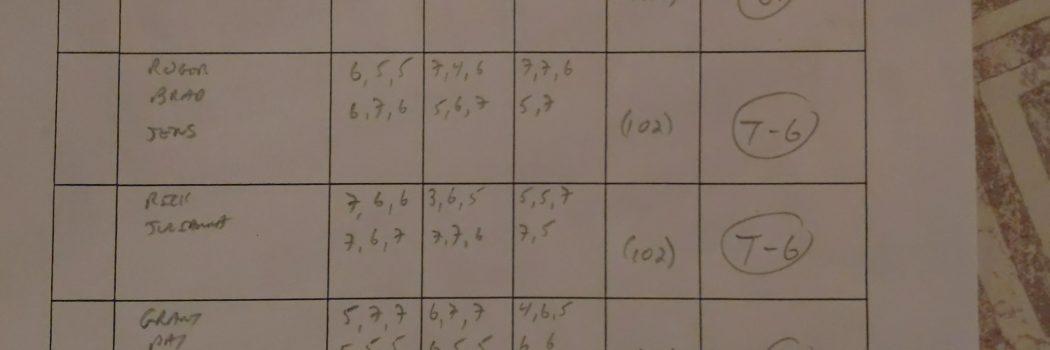 ROGER 6,5,5 7,4,6 7,7,6
BRAD 6,7,6 5,6,7 5,7
JENS (102) T-6
RICK 7,6,6 3,6,5 5,5,7
JULIANNA 7,6,7 7,7,6 7,5
(102) T-6
GRANT 5,7,7 6,7,7 4,6,5
PAT